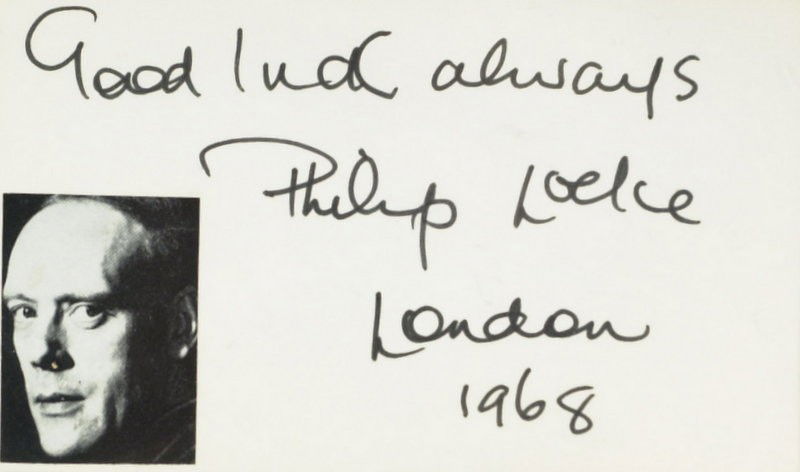 Good luck always
Philip Locke
London
1968